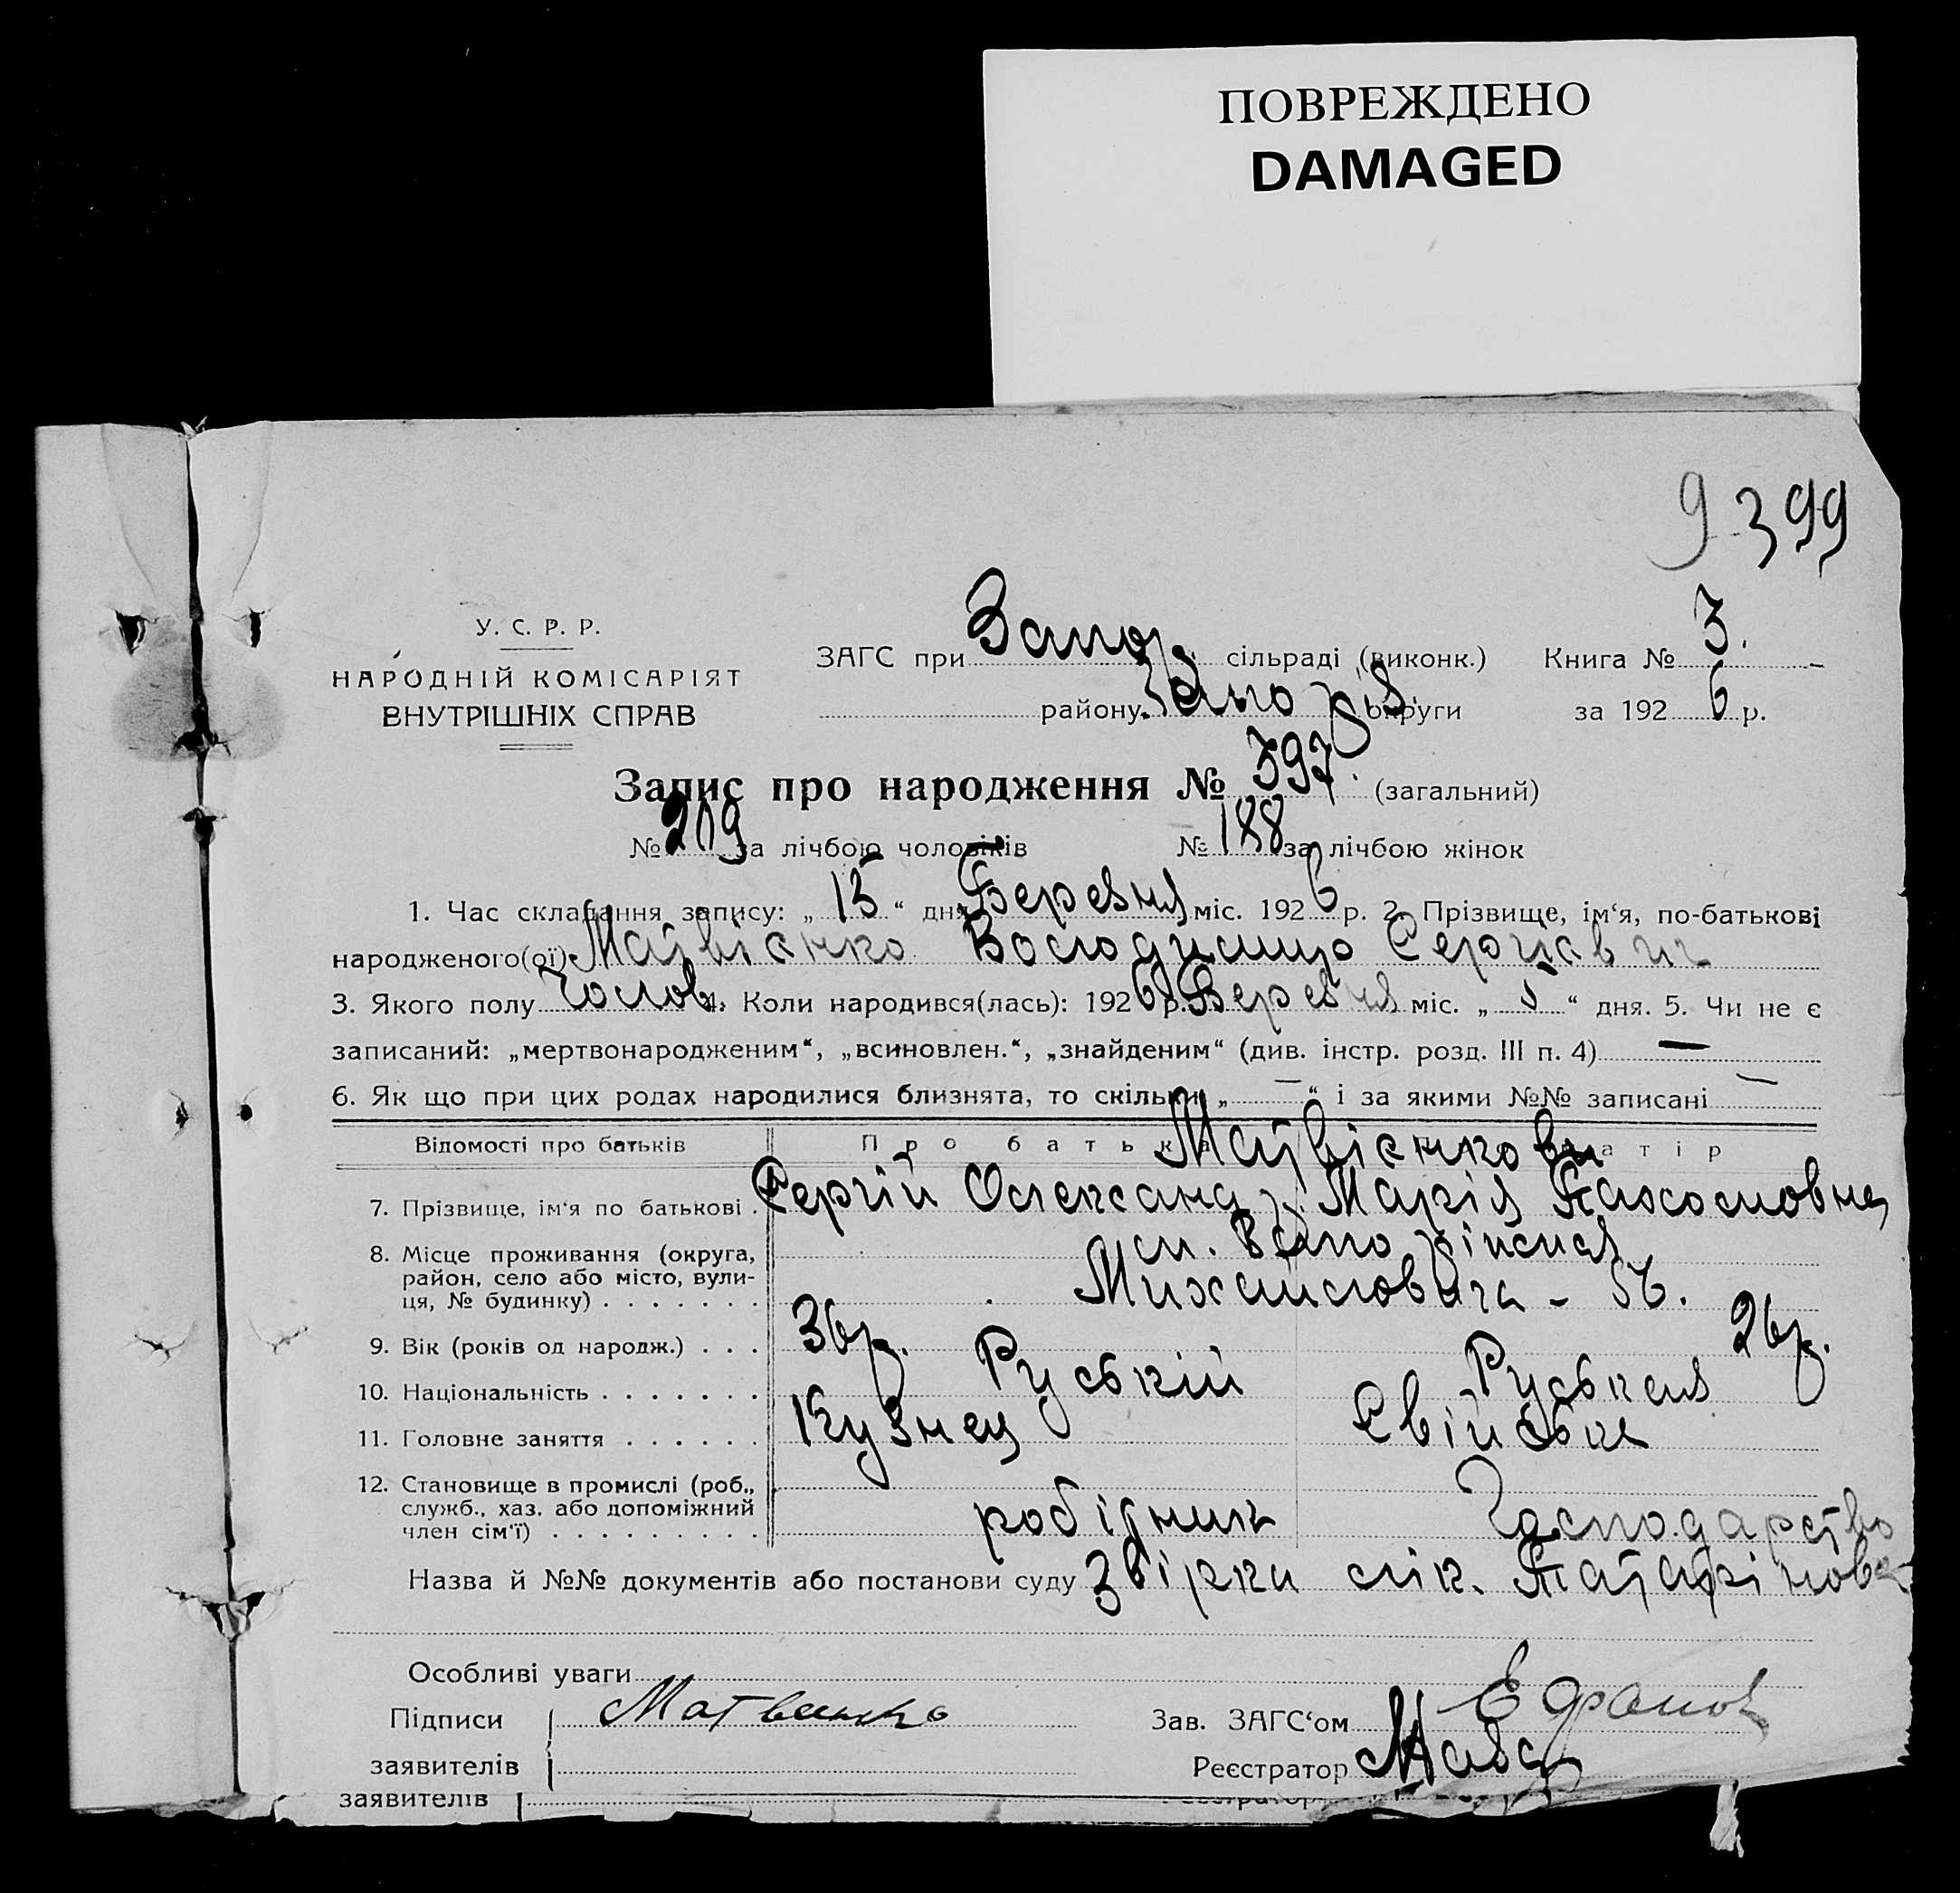 ПОВРЕЖДЕНО
DAMAGED
9 399
У. С. Р. Р.
НАРОДНІЙ КОМІСАРІЯТ
ВНУТРІШНІХ СПРАВ
ЗАГС при Запор. сільраді (виконк.) Книга № 3.
району Запоріз. округи за 192 6 р.
Запис про народження № 397. (загальний)
№ 209 за лічбою чоловіків № 188 за лічбою жінок
1. Час складання запису: „ 15 “ дня Березня міс. 192 6 р. 2. Прізвище, ім‘я, по-батькові
народженого(ої) Матвієнко Володимир Сергієвич
3. Якого полу Чолов. 4. Коли народився(лась): 192 6 р. Березня міс. „ 5 “ дня. 5. Чи не є
записаний: „мертвонародженим“, „всиновлен.“, „знайденим“ (див. інстр. розд. III п. 4) —
6. Як що при цих родах народилися близнята, то скільки „ — “ і за якими №№ записані —
Відомості про батьків Про батька матір
Матвієнкови
7. Прізвище, ім‘я по батькові . Сергій Олександ. Марія Пахомовна
8. Місце проживання (округа,
район, село або місто, вули-
ця, № будинку) . . . . . . .
м. Запоріжжя
Михайловска - 56.
9. Вік (років од народж.) . . . 36р. 26р.
10. Національність . . . . . . . Руській Руськая
11. Головне заняття . . . . . . Кузнец Свійське
12. Становище в промислі (роб.,
служб., хаз. або допоміжний
член сім‘ї) . . . . . . . . .
робітник Господарство
Назва й №№ документів або постанови суду Звірка лік.
Особливі уваги
Підписи Матвиенко Зав. ЗАГС‘ом
заявителів Реєстратор
заявителів